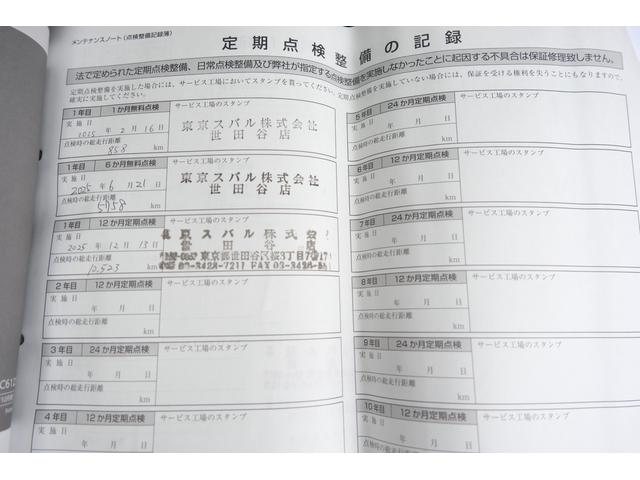 メンテナンスノート(点検整備記録簿)
定期点検整備の記録
法で定められた定期点検整備、日常点検整備及び弊社が指定する点検整備を実施しなかったことに起因する不具合は保証修理致しません。
定期点検整備を実施した場合には、サービス工場においてスタンプを貰ってください。定期点検整備を実施していない場合には、保証を受ける権利を失うことにもなりますので、
確実に実施してください。
1年目 1か月無料点検 サービス工場のスタンプ
実施日
2025年2月16日
東京スバル株式会社
世田谷店
点検時の総走行距離
858 km
1年目 6か月無料点検 サービス工場のスタンプ
実施日
2025年6月21日
東京スバル株式会社
世田谷店
点検時の総走行距離
5958 km
1年目 12か月定期点検 サービス工場のスタンプ
実施日
2025年12月13日
東京スバル株式会
世田谷店
東京都世田谷区桜3丁目7番17
03-3428-7211 FAX 03-3428-
点検時の総走行距離
10,523 km
2年目 12か月定期点検 サービス工場のスタンプ
実施日
年 月 日
点検時の総走行距離
km
3年目 24か月定期点検 サービス工場のスタンプ
実施日
年 月 日
点検時の総走行距離
km
4年目 12か月定期点検 サービス工場のスタンプ
実施日
年 月 日
5年目 24か月定期点検 サービス工場のスタンプ
実施日
年 月 日
点検時の総走行距離
km
6年目 12か月定期点検 サービス工場のスタンプ
実施日
年 月 日
点検時の総走行距離
km
7年目 24か月定期点検 サービス工場のスタンプ
実施日
年 月 日
点検時の総走行距離
km
8年目 12か月定期点検 サービス工場のスタンプ
実施日
年 月 日
点検時の総走行距離
km
9年目 24か月定期点検 サービス工場のスタンプ
実施日
年 月 日
点検時の総走行距離
km
10年目 12か月定期点検 サービス工場のスタンプ
実施日
年 月 日